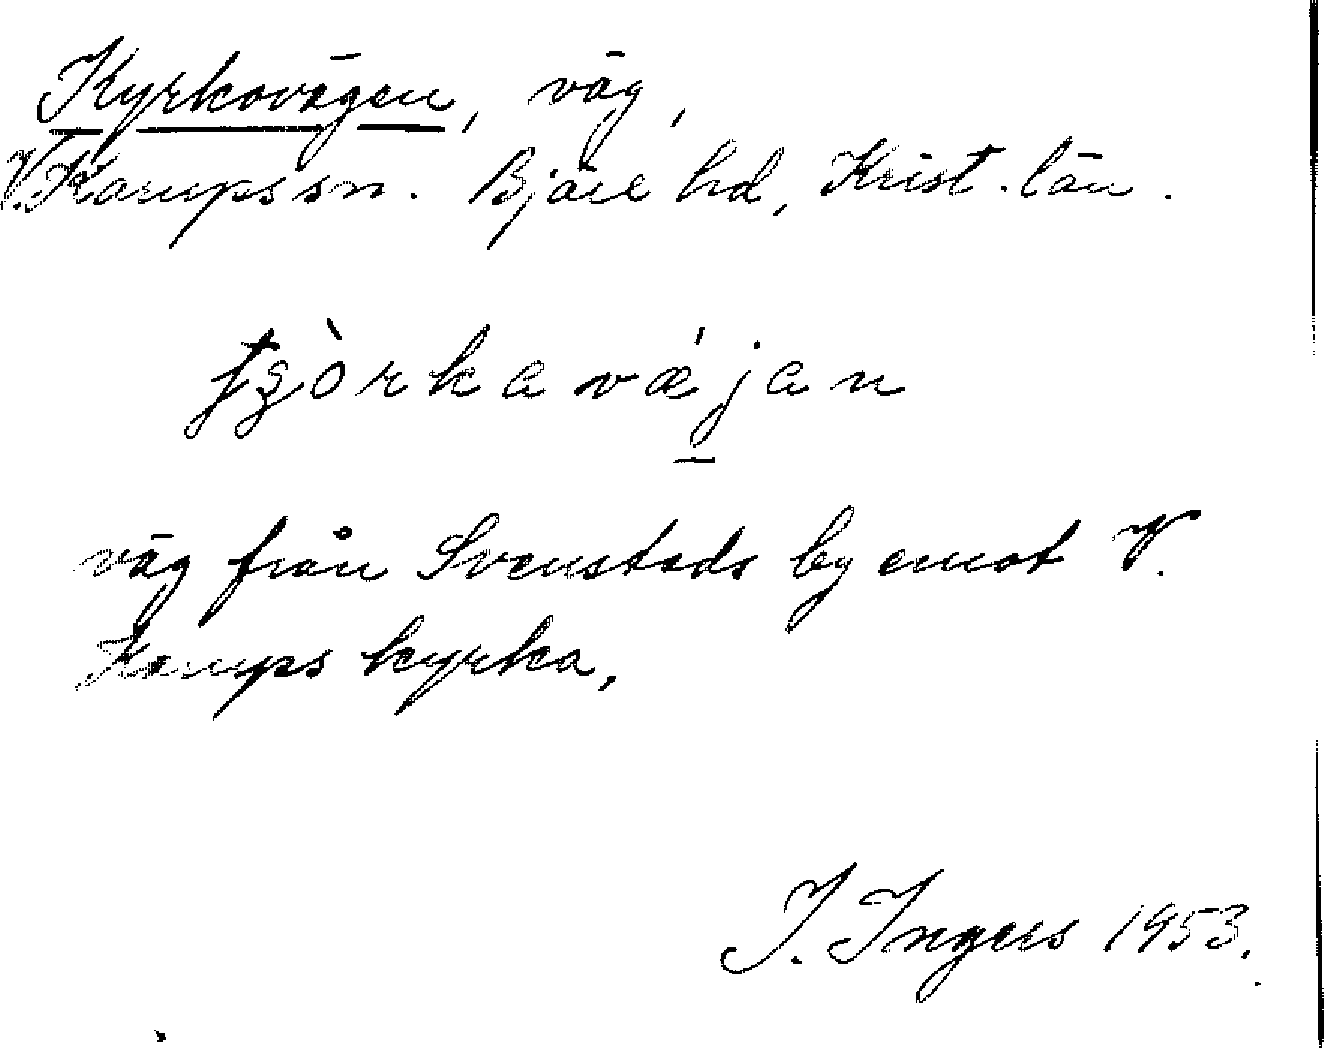 Kyrkovägen, väg,
V. Karups sn. Bjäre hd, Krist. län.
ʈʂòrkavǽjan
väg från Svenstads by emot V.
Karups kyrka,
I. Ingers 1953.